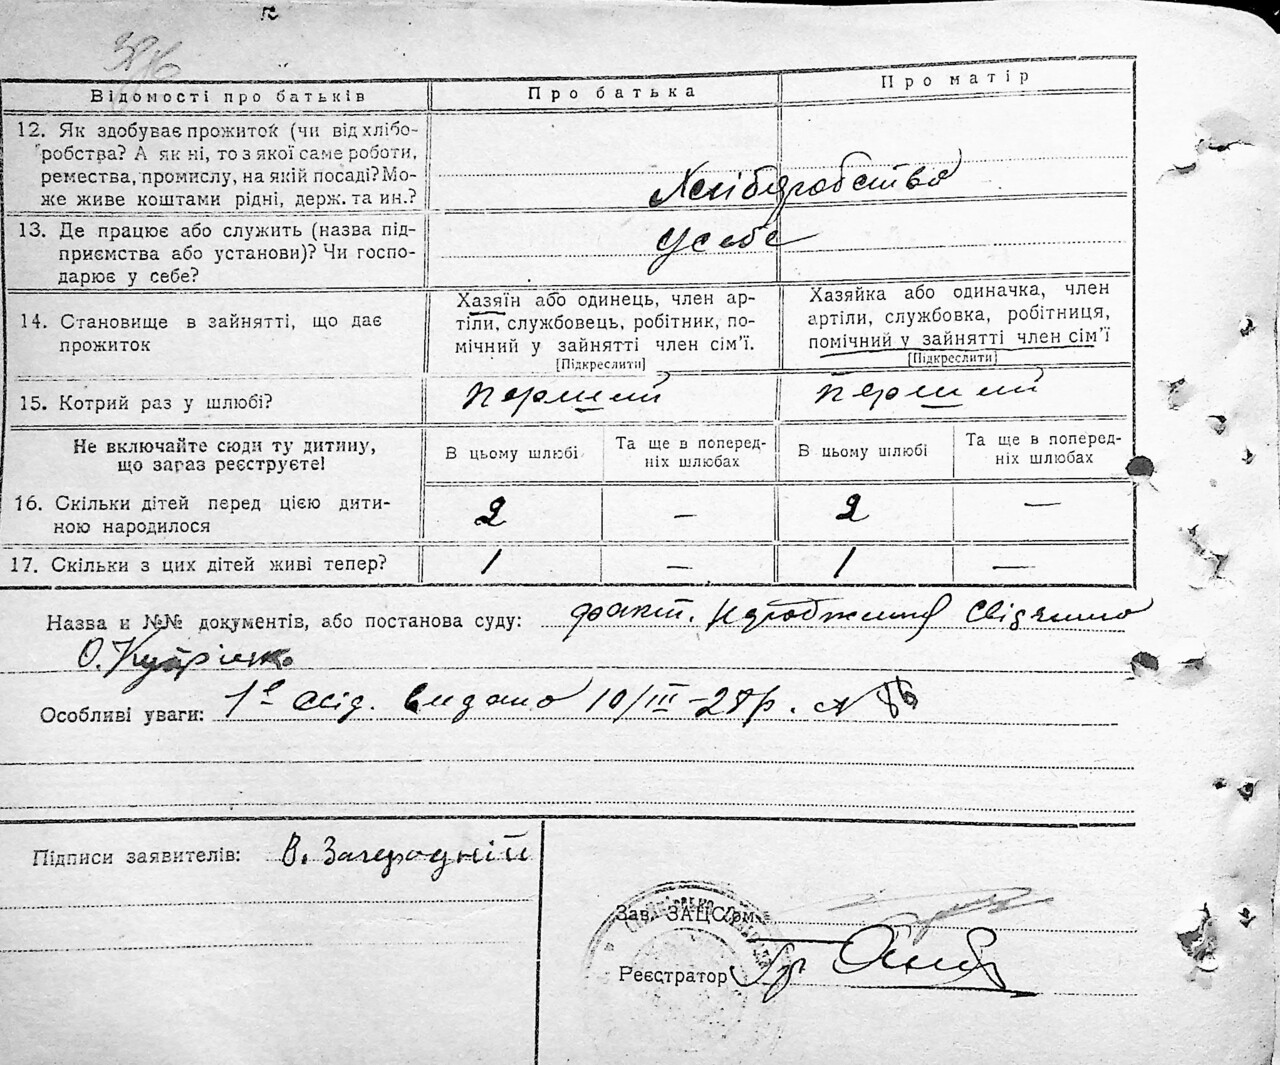 Відомості про батьків
Про батька
Про матір
12. Як здобуває прожиток (чи від хлібо-
робства? А як ні, то з якої саме роботи,
ремества, промислу, на якій посаді? Мо-
же живе коштами рідні, держ. та ин.?
Хліборобство
13. Де працює або служить (назва під-
приємства або установи)? Чи госпо-
дарює у себе?
у себе
14. Становище в зайнятті, що дає
прожиток
Хазяїн або одинець, член ар-
тіли, службовець, робітник, по-
мічний у зайнятті член сім'ї.
[Підкреслити]
Хазяйка або одиначка, член
артіли, службовка, робітниця,
помічний у зайнятті член сім'ї
[Підкреслити]
15. Котрий раз у шлюбі?
перший
перший
Не включайте сюди ту дитину,
що зараз реєструєте!
В цьому шлюбі
Та ще в поперед-
ніх шлюбах
В цьому шлюбі
Та ще в поперед-
ніх шлюбах
16. Скільки дітей перед цією дити-
ною народилося
2 — 2 —
17. Скільки з цих дітей живі тепер?
1 — 1 —
Назва и №№ документів, або постанова суду: факт.
О.
Особливі уваги: видано 10/III-28р. №
Підписи заявителів: В. Загородній
Зав. ЗАЦС'ом
Реєстратор